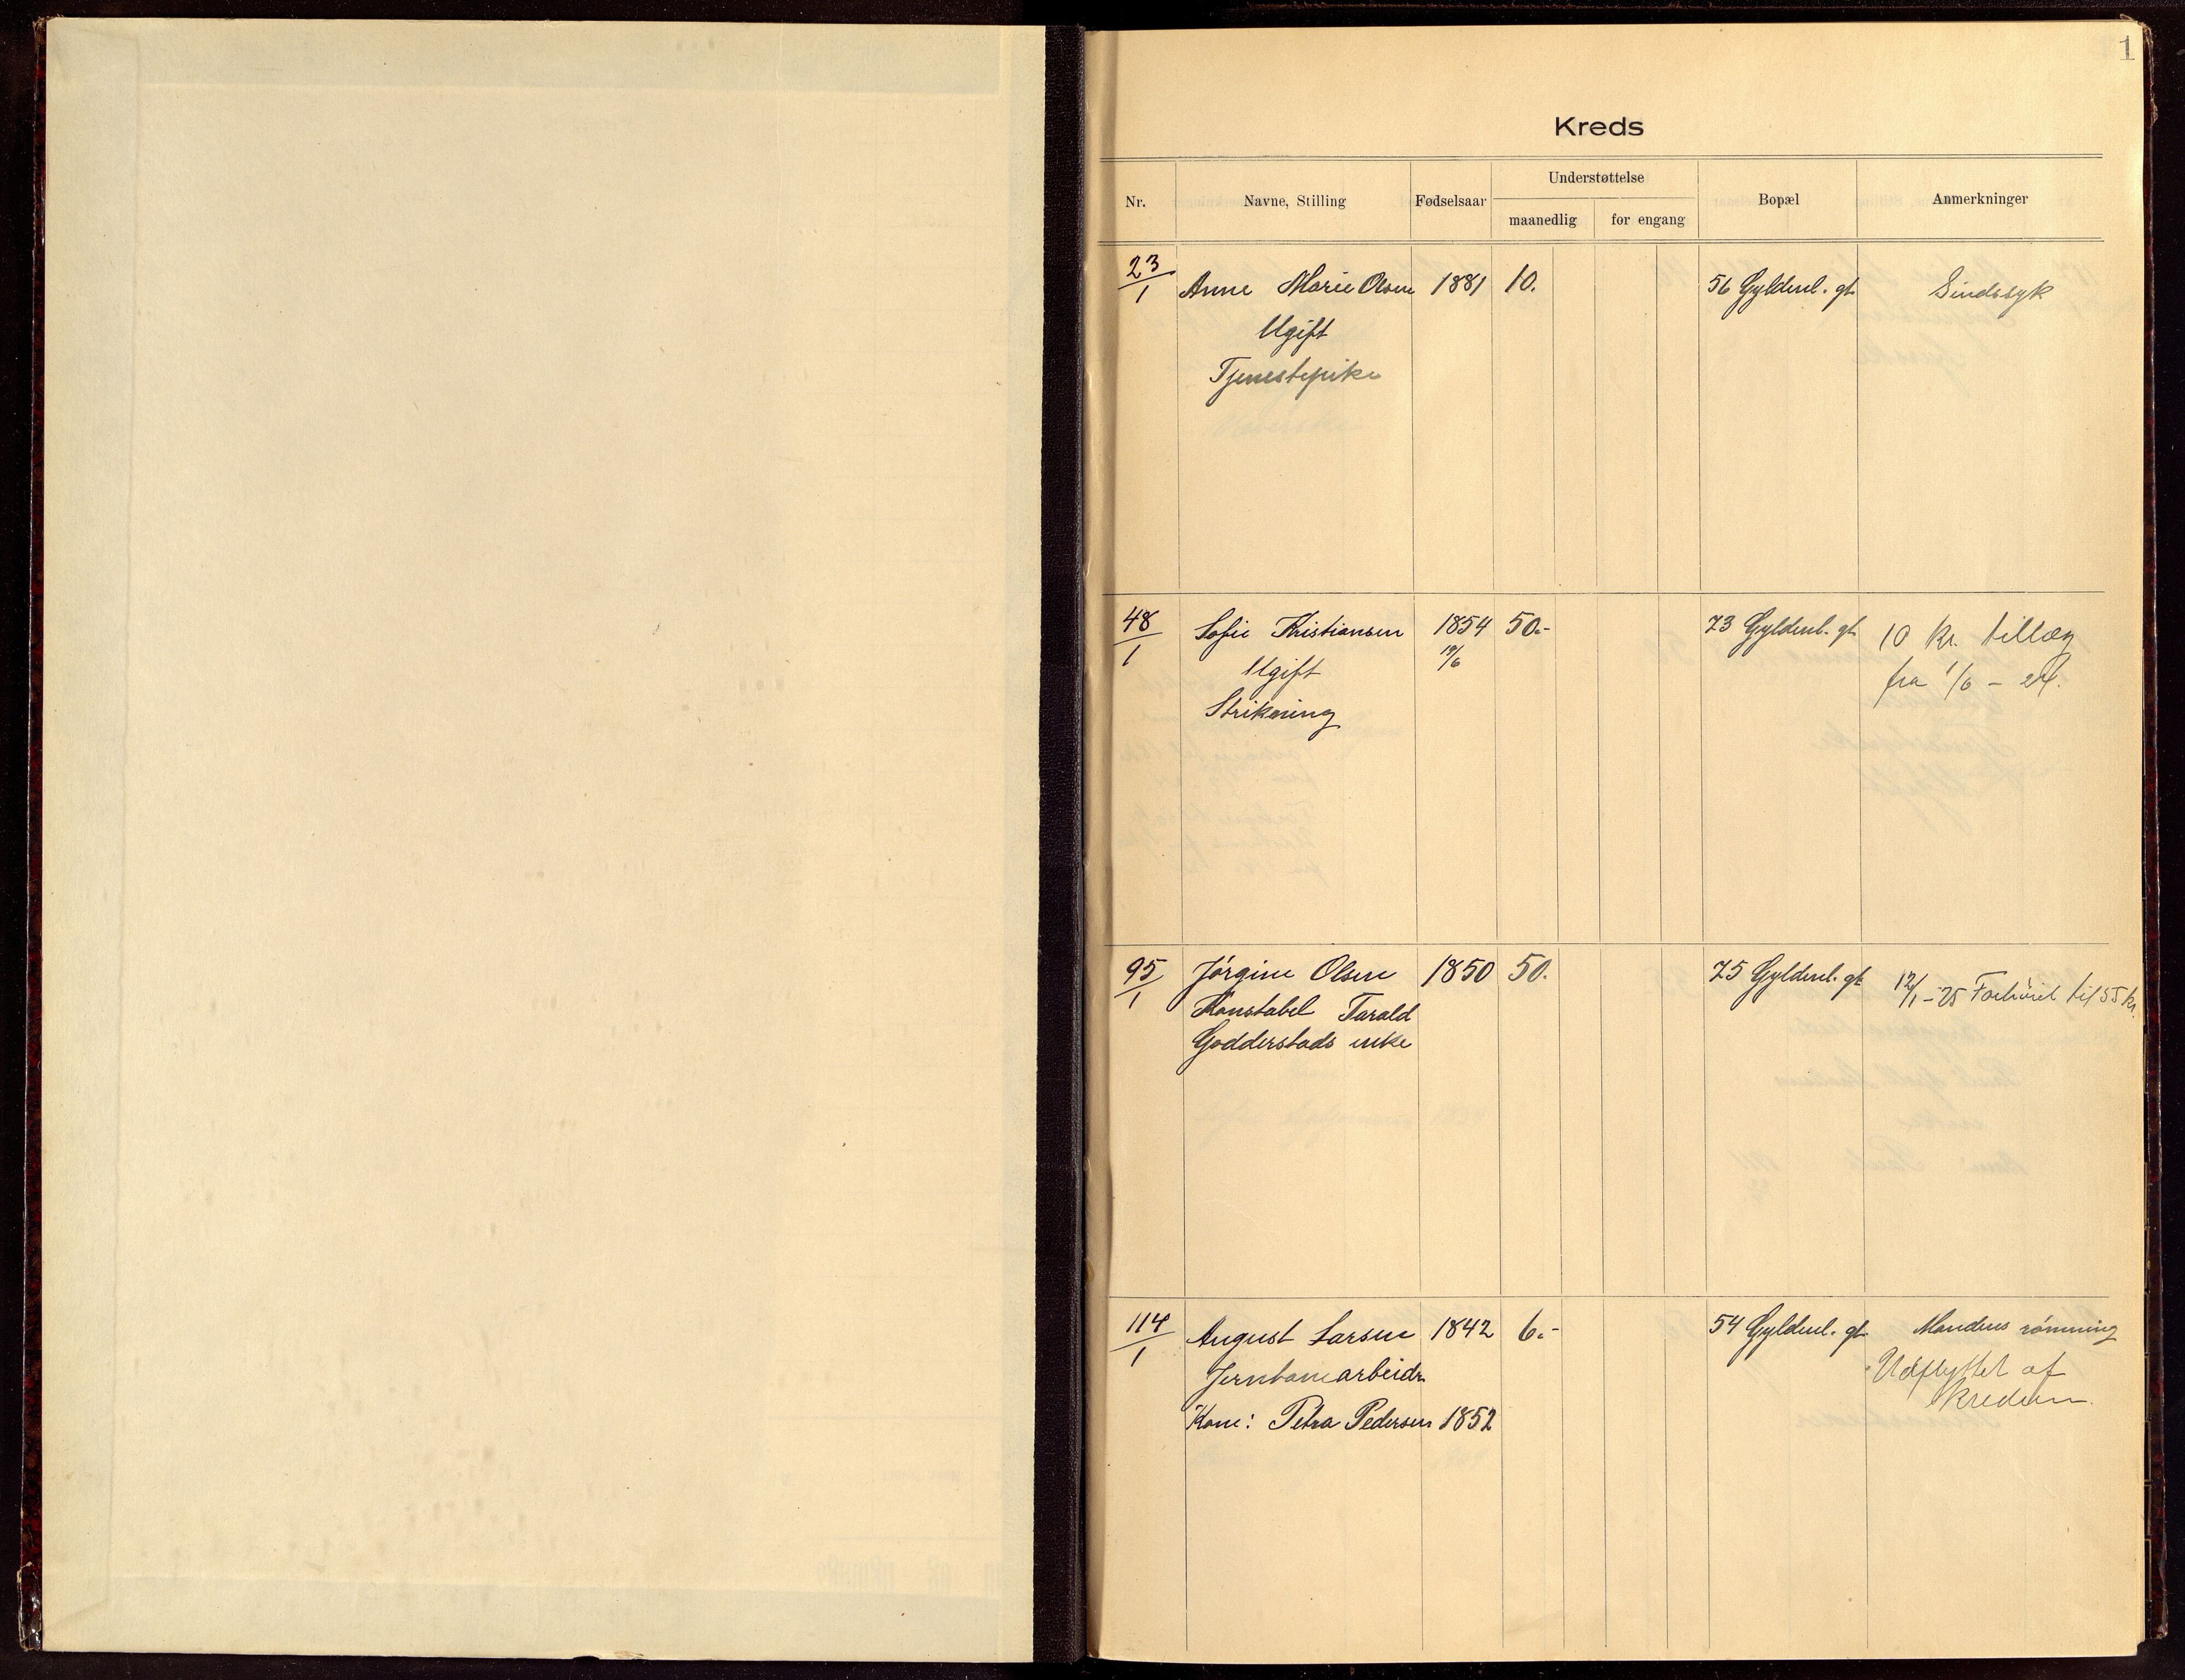 1
Kreds
Nr. Navne, Stilling Fødselsaar Understøttelse maanedlig for engang Bopæl Anmerkninger
23/1 Anne Marie Olsen 1881 10. 56 Gyldenl. gt. Sindssyk
Ugift
Tjenestepike
48/1 Sofie Kristiansen 1854 50.- 73 Gyldenl. gt. 10 kr. tillæg
19/6 fra 1/6 - 24.
Ugift
Strikning
95/1 Jørgine Olsen 1850 50. 75 Gyldenl. gt. 12/1 - 25 Forhöiet til 55 kr.
Konstabel Tarald
Godderstads enke
114/1 August Larsen 1842 6.- 54 Gyldenl. gt. Mandens römning
Jernbanearbeider Udflyttet af
kredsen.
Kone: Petra Pedersen 1852